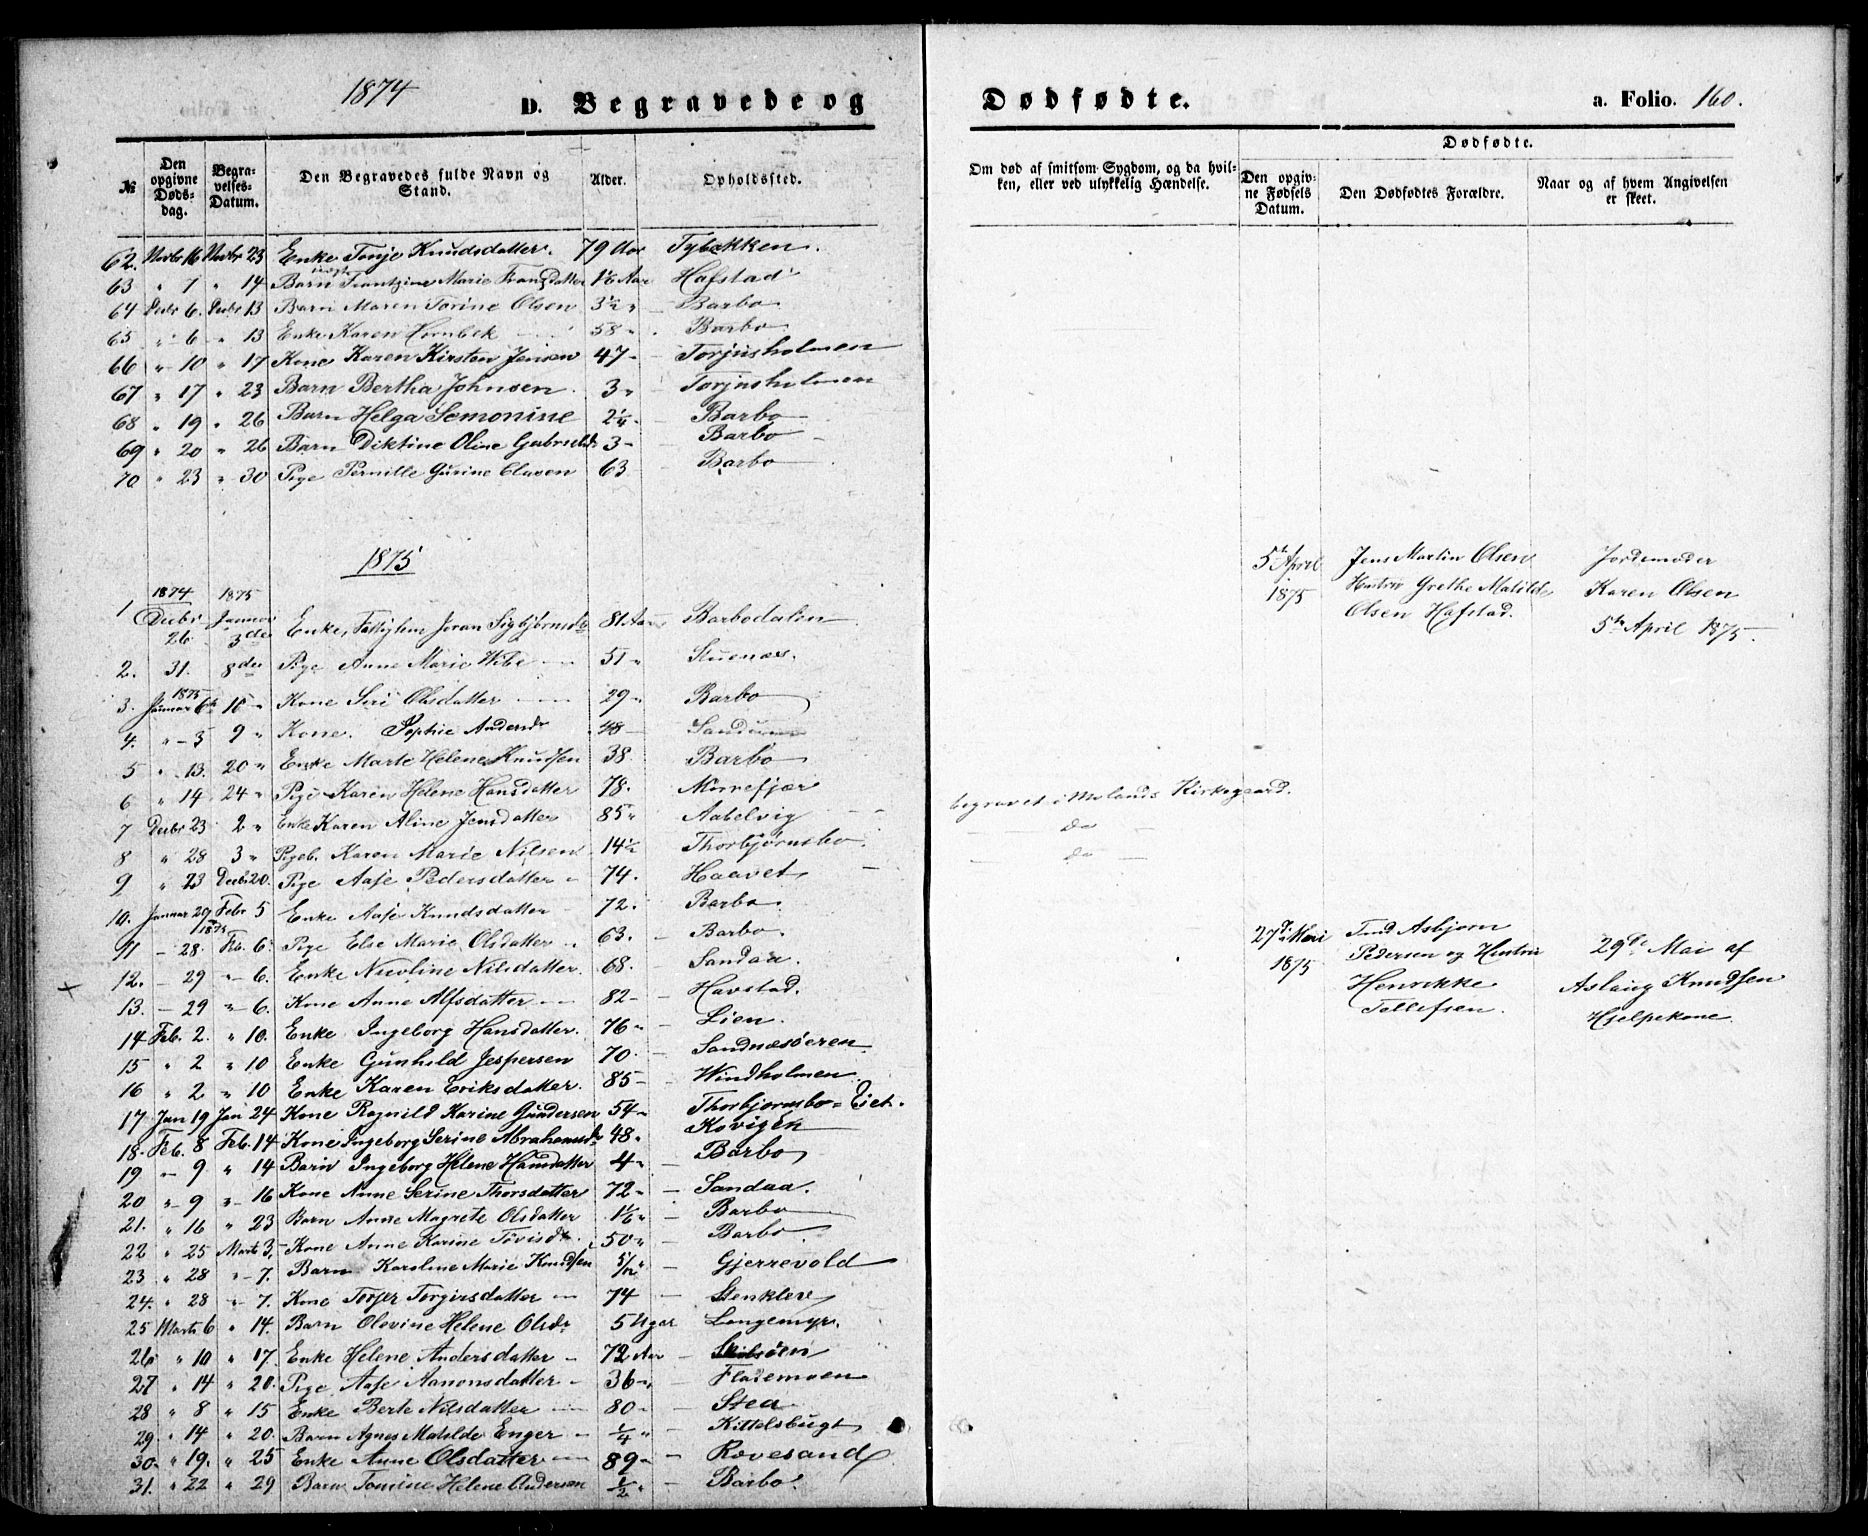 1874
D. Begravede og Dødfødte. a. Folio. 160.
№ Den opgivne Døds-dag. Begra-velses-Datum. Den Begravedes fulde Navn og Stand. Alder. Opholdssted. Om død af smitsom Sygdom, og da hvil-ken, eller ved ulykkelig Hændelse. Dødfødte.
Den opgiv-ne Fødsels Datum. Den Dødfødtes Forældre. Naar og af hvem Angivelsen er skeet.
62. Novbr 16 Novbr 23 Enke Tonje Knudsdatter. 79 Aar Tybækken.
63 " 1 " 14 Barn Frantzine Marie Fransdatter 1 1/6 Aar Hafstad
64 Decbr 6. Decbr 13 Barn Maren Torine Olsen 3½ " Barbo
65 " 6 " 13 Enke Karen Hornbek 58 " Barbo
66 " 10 " 17 Kone Karen Kirsten Jensen 47 - Torjusholmen
67 " 17 " 23 Barn Bertha Johnsen 3 " Torjusholmen
68 " 19 " 26 Barn Helga Semonine 2¼ - Barbo
69 " 20 " 26 Barn Diktine Oline 3 - Barbo
70 " 23 " 30 Pige Pernille Gurine Clausen 63 Barbo
1875
1 1874 Decbr 26 1875 Januar 3die Enke, Fattiglem Joran 81 Aar Barbodalen
2. 31. 8de Pige Anne Marie Wibe 51 " Stuenæs.
3. 1875 Januar 6te 15 " Kone Siri Olsdatter 29 " Barbo
4. " - 3 9 " Kone. Sophie Andersdr 48 -
5 " 13. 20 " Enke Marte Helene Knudsen 38. Barbo
6 " 14 24 " Pige Karen Helene Hansdatter 78. Morrefjær
7 Decbr 23 2 " Enke Karen Aline Jensdatter 85 " Aabelvig
8 " 28 3 " Pigeb. Karen Marie Nilsen 14½ Thorbjørnsbo
9 " 23 Decbr 20. Pige Aase Pedersdatter 74. Haavet
10. Januar 29 1875 Febr 5 Enke Aase Knudsdatter 72. Barbo
11 - 28. Feb. 6. Pige Else Marie Olsdatter 63. - Barbo.
12. - 29 " 6. Enke Nicoline Nilsdatter. 68. - Sandaa.
13. - 29 " - 6. Kone Anne Alfsdatter 82 - Havstad.
14 Feb. 2. " 10. Enke Ingeborg Hansdatter. 76 " - Lien.
15 " 2 " 10 Enke Gunhild Jespersen 70. - Sandnæsøeren.
16 " 2 " 10 Enke Karen Eriksdatter. 85 - Windholmen
17 Jan 19 Jan 24 Kone Ragnild Karine Gundersen 54 " Thorbjornsbo = Eiet.
18. Feb. 8 Feb. 14 Kone Ingeborg Serine Abrahamsdr 48 " Kovigen
19 " 9 " 14 Barn Ingeborg Helene Hansdatter 4 " - Barbo
20 " - 9 " - 16 Kone Anne Serine Thorsdatter 72 " - Sandaa.
21. " 16 " 23 Barn Anne Magrete Olsdatter 1 1/6 " - Barbo
22 " 25 Marts 3. Kone Anne Karine Tovisdr. 50 " - Barbo.
23 " 28 " - 7. Barn Karoline Marie Knudsen 5/12 " - Gjerrevold
24. " 28 " - 7. Kone Torjer Torgirsdatter 74 - Stenklev
25 Marts 6 " 14. Barn Olevine Helene Olsdr 5 Uger Longemyr.
26 " 10 " 17. Enke Helene Andersdatter 72 Aar -
27 " 14 " 20. Pige Aase Aanonsdatter 36 " - Flademoen
28 " 8 " 15 Enke Berte Nilsdatter 80 " - Stea
29 " 14 " 20. Barn Agnes Matilde Enger 1/4 " - Kittelsbugt
30. " 19. " 25 Enke Anne Olsdatter 89 " - Rævesand
31. " 22 " 29 Barn Tomine Helene Andersen 1/2 " - Barbo.
5te April 1875 Jens Martin Olsen Hustru Grethe Matilde Olsen Hafstad. Jordemoder Karen Olsen 5te April 1875.
begravet i Molands Kirkegaard.
do
do
27de Mai 1875 Asbjorn Pedersen og Hustru Henrikke Tellefsen. 29de Mai af Aslaug Knudsen Hjelpekone.